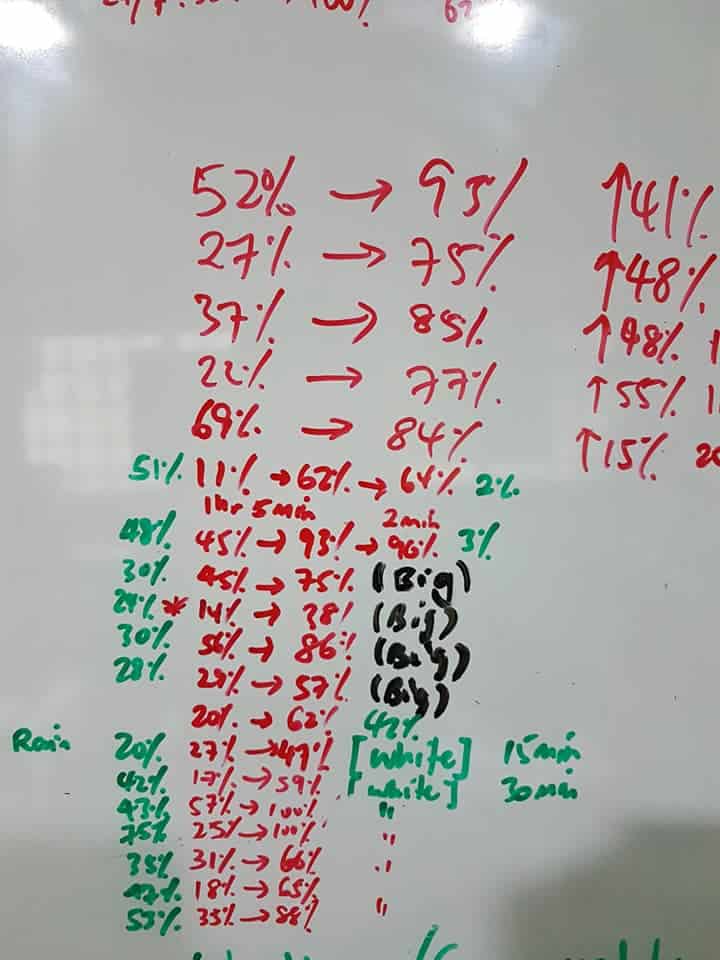 52% → 93% ↑41%
27% → 75% ↑48%
37% → 85% ↑48%
22% → 77% ↑55%
69% → 84% ↑15%
51% 11% → 62% → 64% 2%
1hr 5min 2min
48% 45% → 93% → 96% 3%
30% 45% → 75% (Big)
24% * 14% → 38% (Big)
30% 56% → 86% (Big)
28% 29% → 57% (Big)
20% → 62% 42%
Rain 20% 27% → 47% [white] 15min
42% 17% → 59% [white] 30min
43% 57% → 100% "
75% 25% → 100% "
35% 31% → 66% "
47% 18% → 65%
53% 35% → 88% "